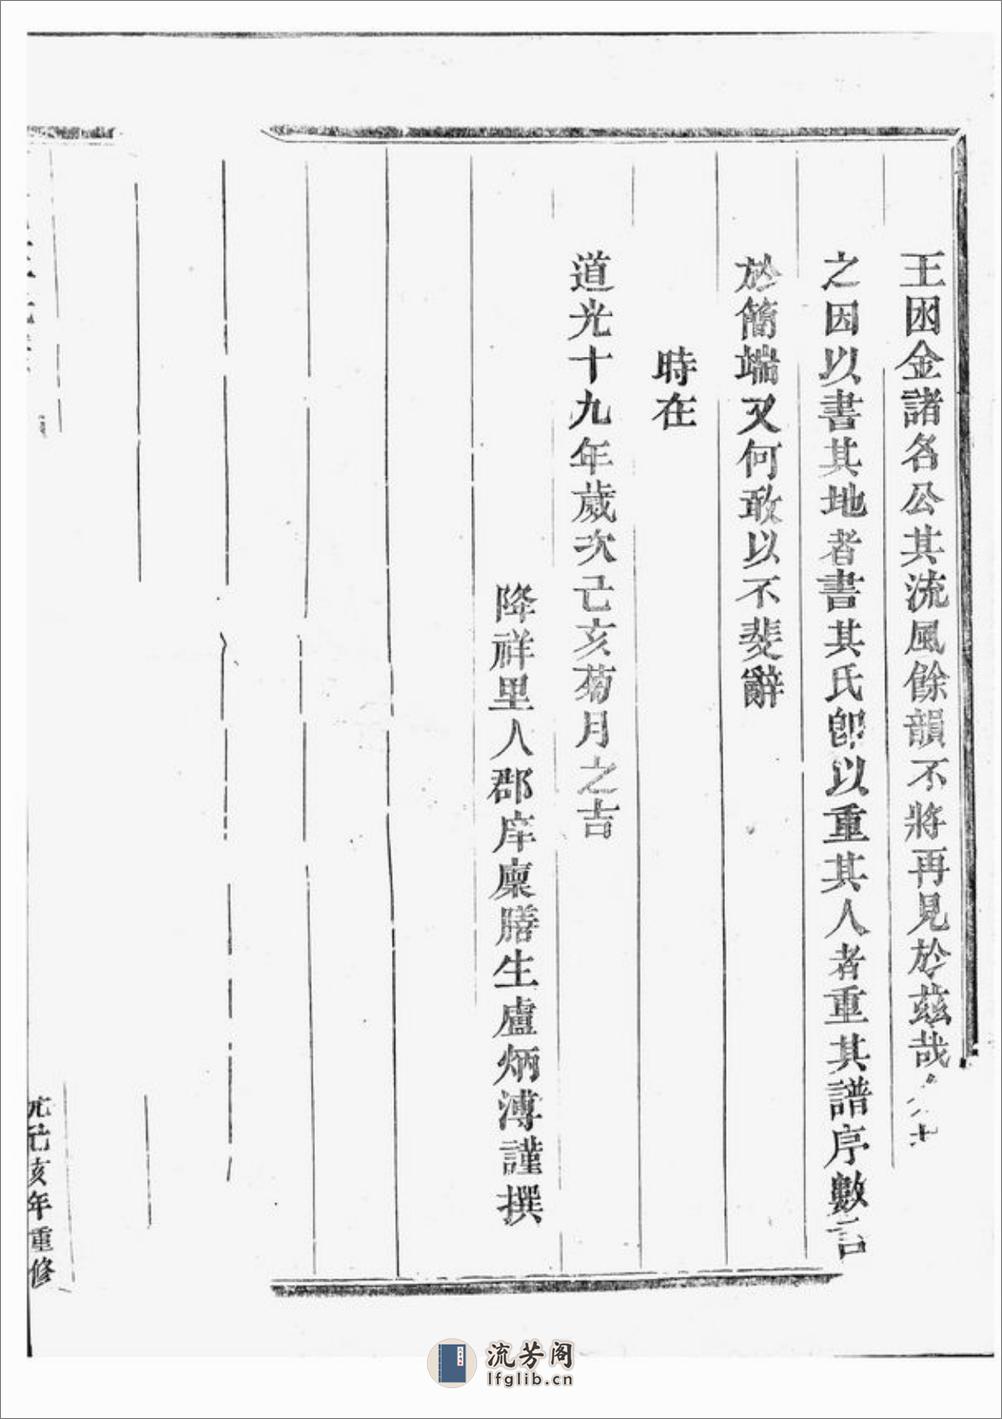 王困金諸名公其流風餘韻不將再見於茲哉
之因以書其地者書其氏卽以重其人者重其譜序數言
於簡端又何敢以不斐辭
時在
道光十九年歲次己亥菊月之吉
降祥里人郡庠廩膳生盧炳溥謹撰
光己亥年重修
流芳阁
lfglib.cn